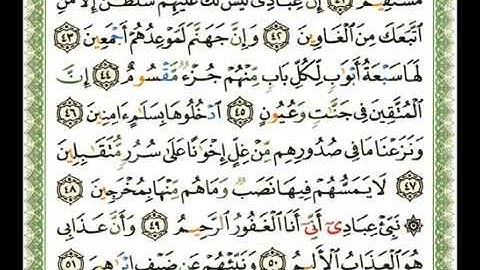 مُّسْتَقِيمٌ ﴿٤١﴾ إِنَّ عِبَادِى لَيْسَ لَكَ عَلَيْهِمْ سُلْطَٰنٌ إِلَّا مَنِ
ٱتَّبَعَكَ مِنَ ٱلْغَاوِينَ ﴿٤٢﴾ وَإِنَّ جَهَنَّمَ لَمَوْعِدُهُمْ أَجْمَعِينَ ﴿٤٣﴾
لَهَا سَبْعَةُ أَبْوَٰبٍ لِّكُلِّ بَابٍ مِّنْهُمْ جُزْءٌ مَّقْسُومٌ ﴿٤٤﴾ إِنَّ
ٱلْمُتَّقِينَ فِى جَنَّٰتٍ وَعُيُونٍ ﴿٤٥﴾ ٱدْخُلُوهَا بِسَلَٰمٍ ءَامِنِينَ ﴿٤٦﴾
وَنَزَعْنَا مَا فِى صُدُورِهِم مِّنْ غِلٍّ إِخْوَٰنًا عَلَىٰ سُرُرٍ مُّتَقَٰبِلِينَ
﴿٤٧﴾ لَا يَمَسُّهُمْ فِيهَا نَصَبٌ وَمَا هُم مِّنْهَا بِمُخْرَجِينَ ﴿٤٨﴾
۞ نَبِّئْ عِبَادِىٓ أَنِّىٓ أَنَا ٱلْغَفُورُ ٱلرَّحِيمُ ﴿٤٩﴾ وَأَنَّ عَذَابِى
هُوَ ٱلْعَذَابُ ٱلْأَلِيمُ ﴿٥٠﴾ وَنَبِّئْهُمْ عَن ضَيْفِ إِبْرَٰهِيمَ ﴿٥١﴾